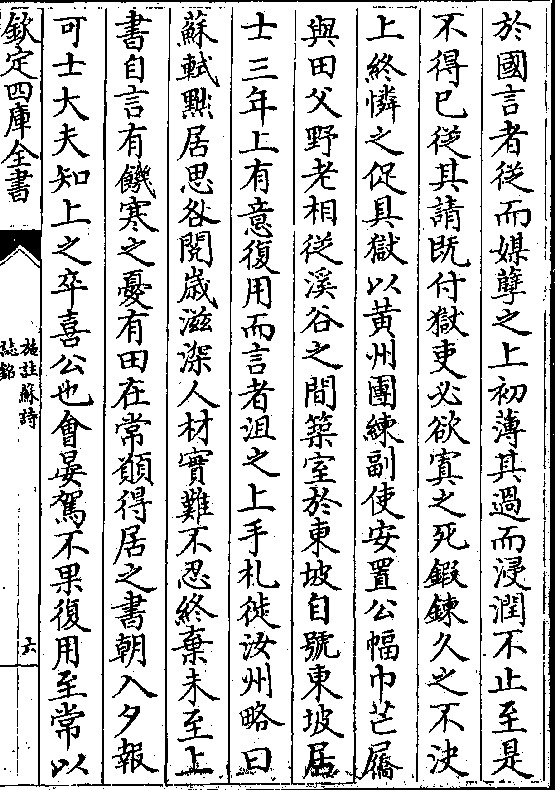 於國言者從而媒孽之上初薄其過而浸潤不止至是
不得已從其請既付獄吏必欲寘之死鍛鍊久之不決
上終憐之促具獄以黃州團練副使安置公幅巾芒屩
與田父野老相從溪谷之間築室於東坡自號東坡居
士三年上有意復用而言者沮之上手札徙汝州略曰
蘇軾黜居思咎閱歲滋深人材實難不忍終棄未至上
書自言有饑寒之憂有田在常願得居之書朝入夕報
可士大夫知上之卒喜公也會晏駕不果復用至常以
欽定四庫全書
施註蘇詩
誌銘
六